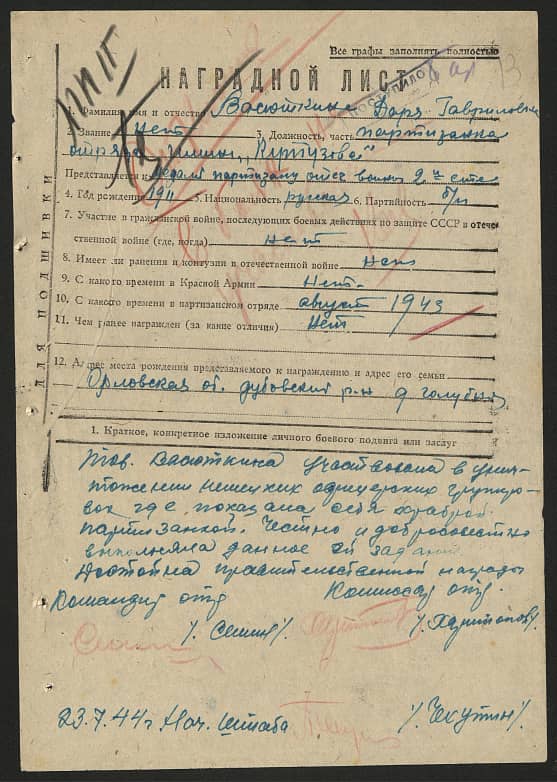 Все графы заполнять полностью
НАГРАДНОЙ ЛИСТ
ПОСТУПИЛО
13
1. Фамилия, имя и отчество Васюткина Даря Гавриловна
2. Звание нет 3. Должность, часть партизанка
отряда имени „Кутузова“
Представляется к медали партизану отеч войны 2й степ
4. Год рождения 1911 5. Национальность русская 6. Партийность б/п
7. Участие в гражданской войне, последующих боевых действиях по защите СССР и отечественной войне (где, когда) нет
8. Имеет ли ранения и контузии в отечественной войне нет
9. С какого времени в Красной Армии Нет
10. С какого времени в партизанском отряде август 1943
11. Чем ранее награжден (за какие отличия) Нет
12. Адрес места рождения представляемого к награждению и адрес его семьи
Орловская об. р-н д
ДЛЯ ПОДШИВКИ
1. Краткое, конкретное изложение личного боевого подвига или заслуг
Тов. Васюткина участвовала в унич-
тожении немецких офицерских группиро-
вок где показала себя храброй
партизанкой. Честно и добросовестно
выполняла данное ей задание
Достойна правительственной награды
Командир отр Комиссар отр.
/. Сешин/. /. Харитонов/.
23.7.44г Нач. штаба /. Чекутин/.